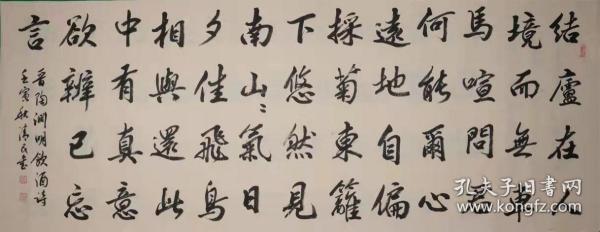 結廬在人
境而無車
馬喧問君
何能爾心
遠地自偏
採菊東籬
下悠然見
南山〻氣日
夕佳飛鳥
相與還此
中有真意
欲辨已忘
言
晉陶淵明飲酒詩
壬寅秋清民書
孔夫子旧书网
www.kongfz.com